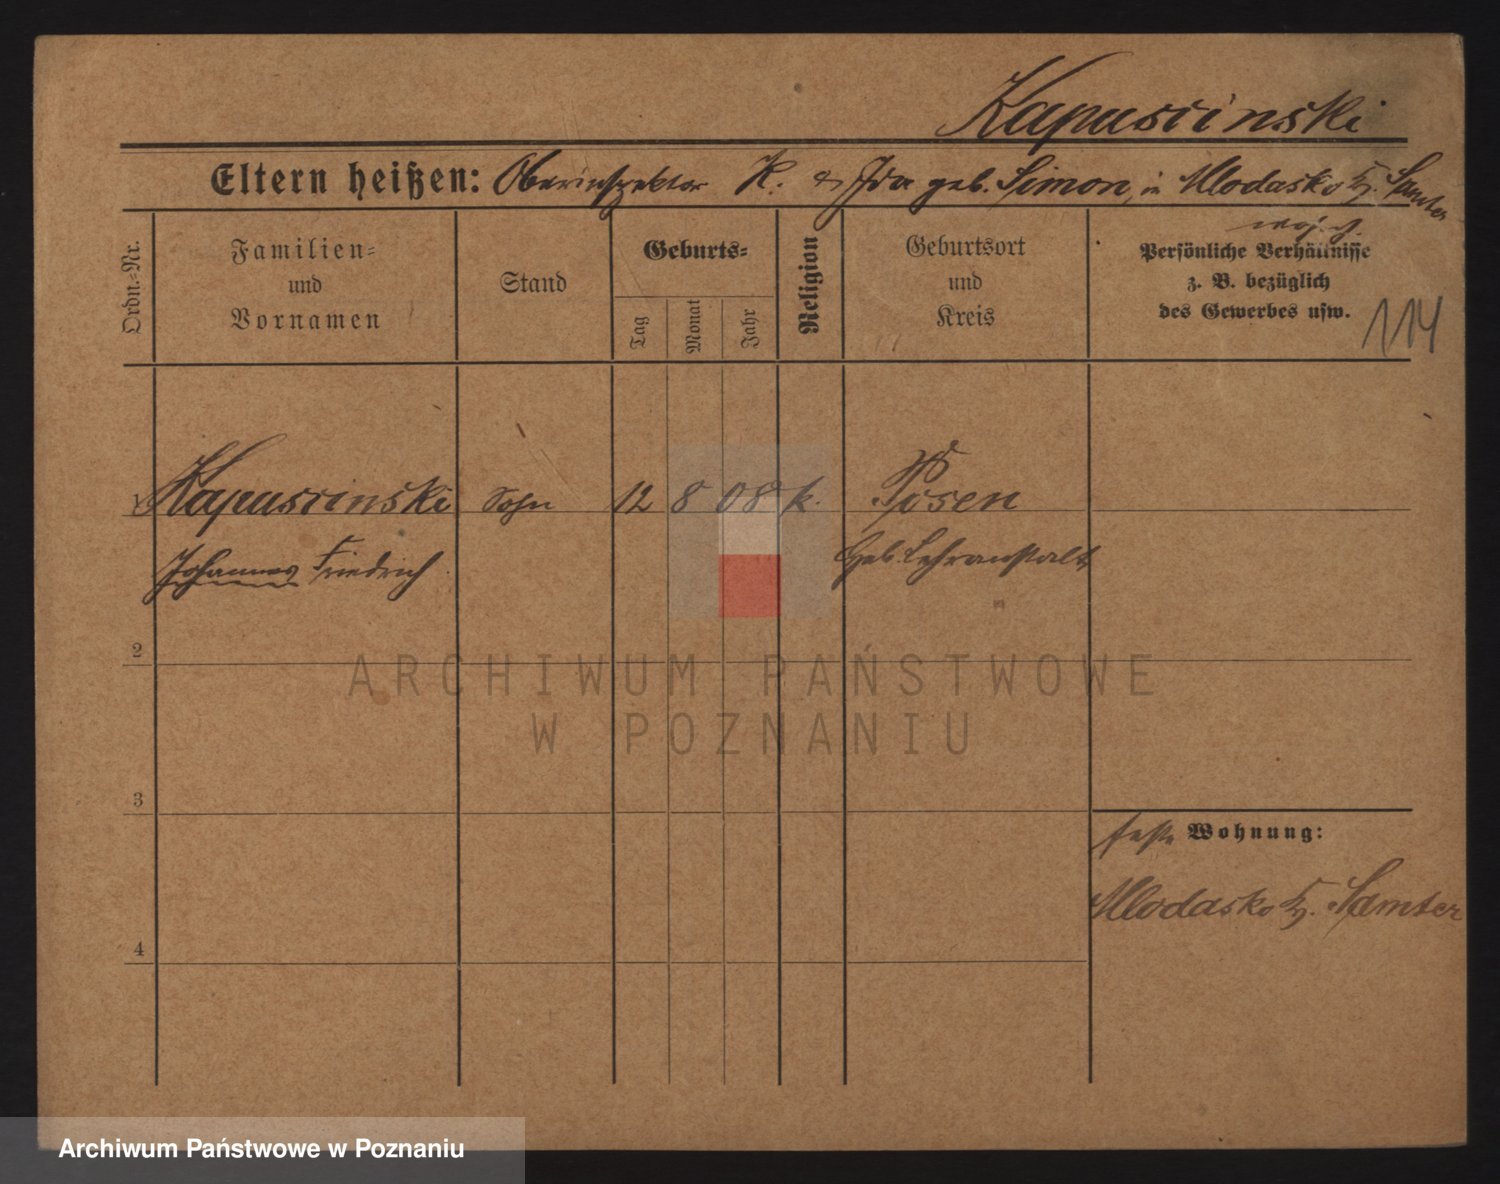 Kapuscinski
Eltern heißen: Oberinspektor K. & Ida geb. Simon, in Mlodasko Kr. Samter
Ordn.-Nr.
Familien-
und
Vornamen
Stand
Geburts-
Tag
Monat
Jahr
Religion
Geburtsort
und
Kreis
Persönliche Verhältnisse
z. B. bezüglich
des Gewerbes usw.
114
1 Kapuscinski Sohn 12 8 08 k. Posen
Johannes Friedrich Heb. Lehranstalt
2
ARCHIWUM PAŃSTWOWE
W POZNANIU
3
feste Wohnung:
Mlodasko Kr. Samter
4
Archiwum Państwowe w Poznaniu